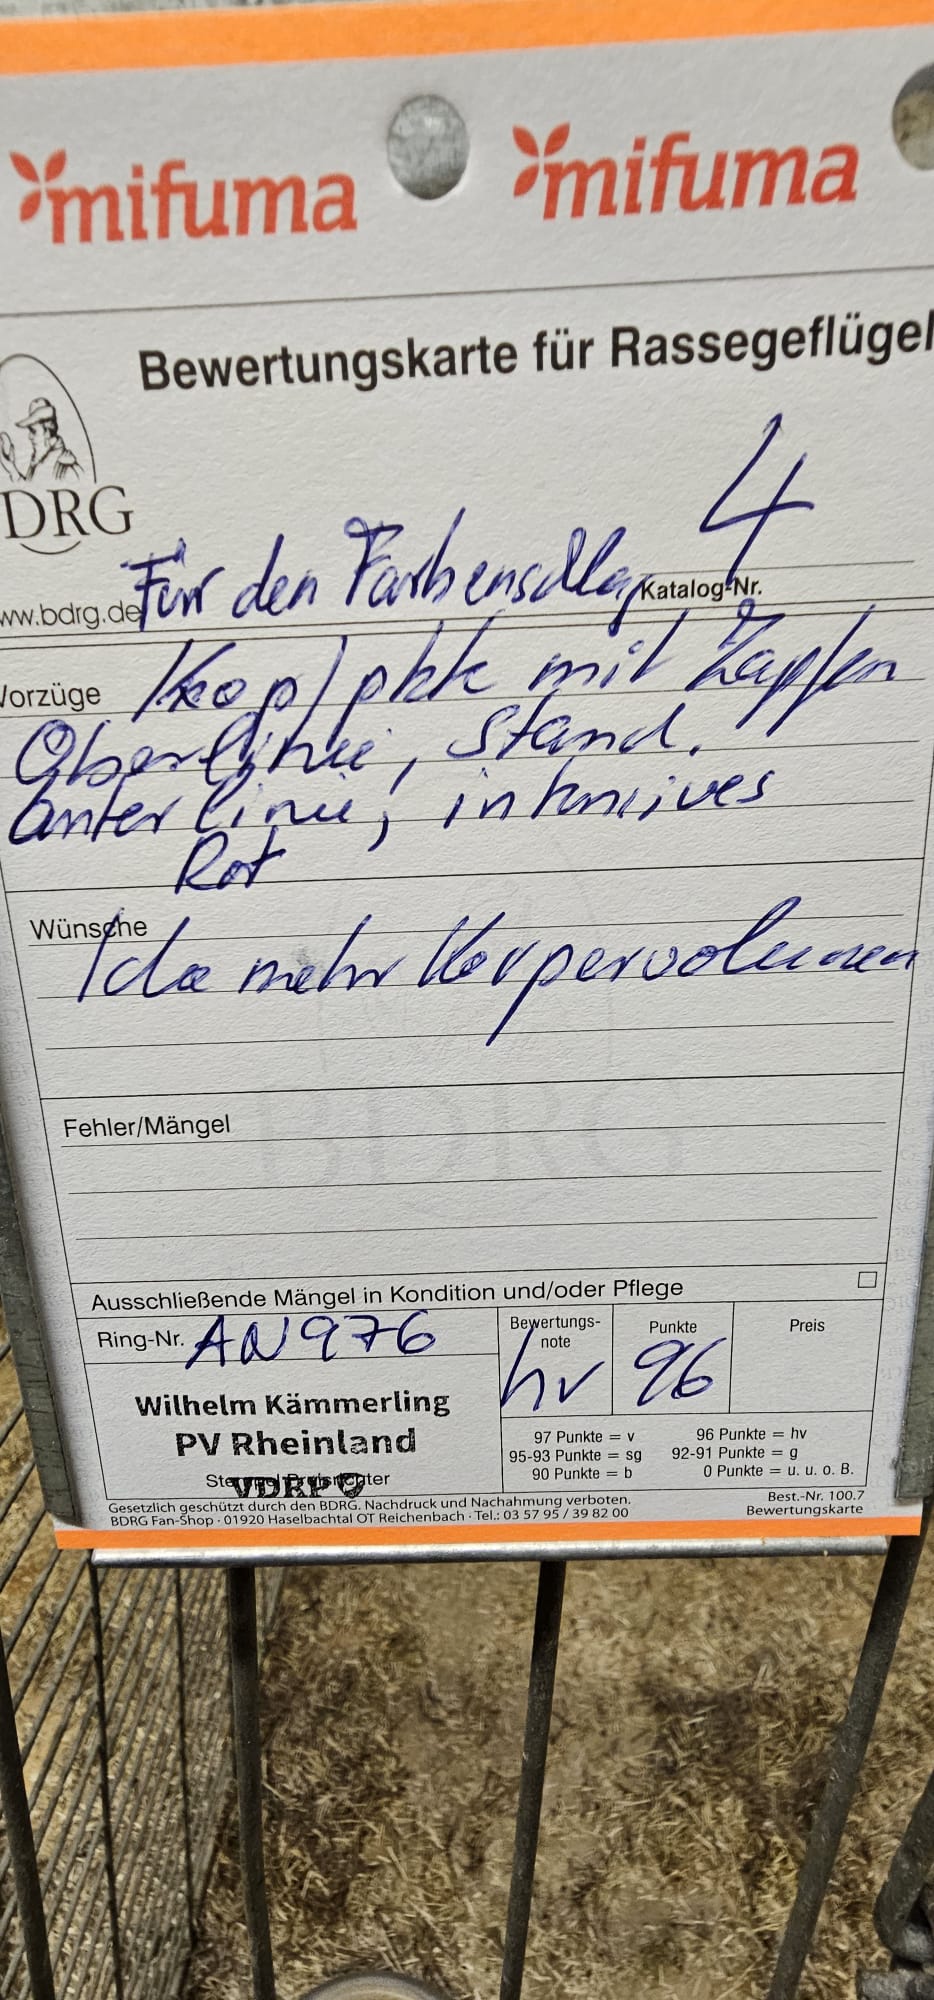 mifuma mifuma
Bewertungskarte für Rassegeflügel
DRG
4
Für den Farbenschlag Katalog-Nr.
ww.bdrg.de
Vorzüge Kopfpkte mit Zapfen
Oberlinie, Stand.
Unterlinie, intensives
Rot
Wünsche
Idee mehr Körpervolumen
BDRG
Fehler/Mängel
Ausschließende Mängel in Kondition und/oder Pflege
Ring-Nr. AN976
Bewertungs-
note
hv
Punkte
96
Preis
Wilhelm Kämmerling
PV Rheinland
VDRP
97 Punkte = v 96 Punkte = hv
95-93 Punkte = sg 92-91 Punkte = g
90 Punkte = b 0 Punkte = u. u. o. B.
Gesetzlich geschützt durch den BDRG. Nachdruck und Nachahmung verboten.
BDRG Fan-Shop · 01920 Haselbachtal OT Reichenbach · Tel.: 03 57 95 / 39 82 00
Best.-Nr. 100.7
Bewertungskarte